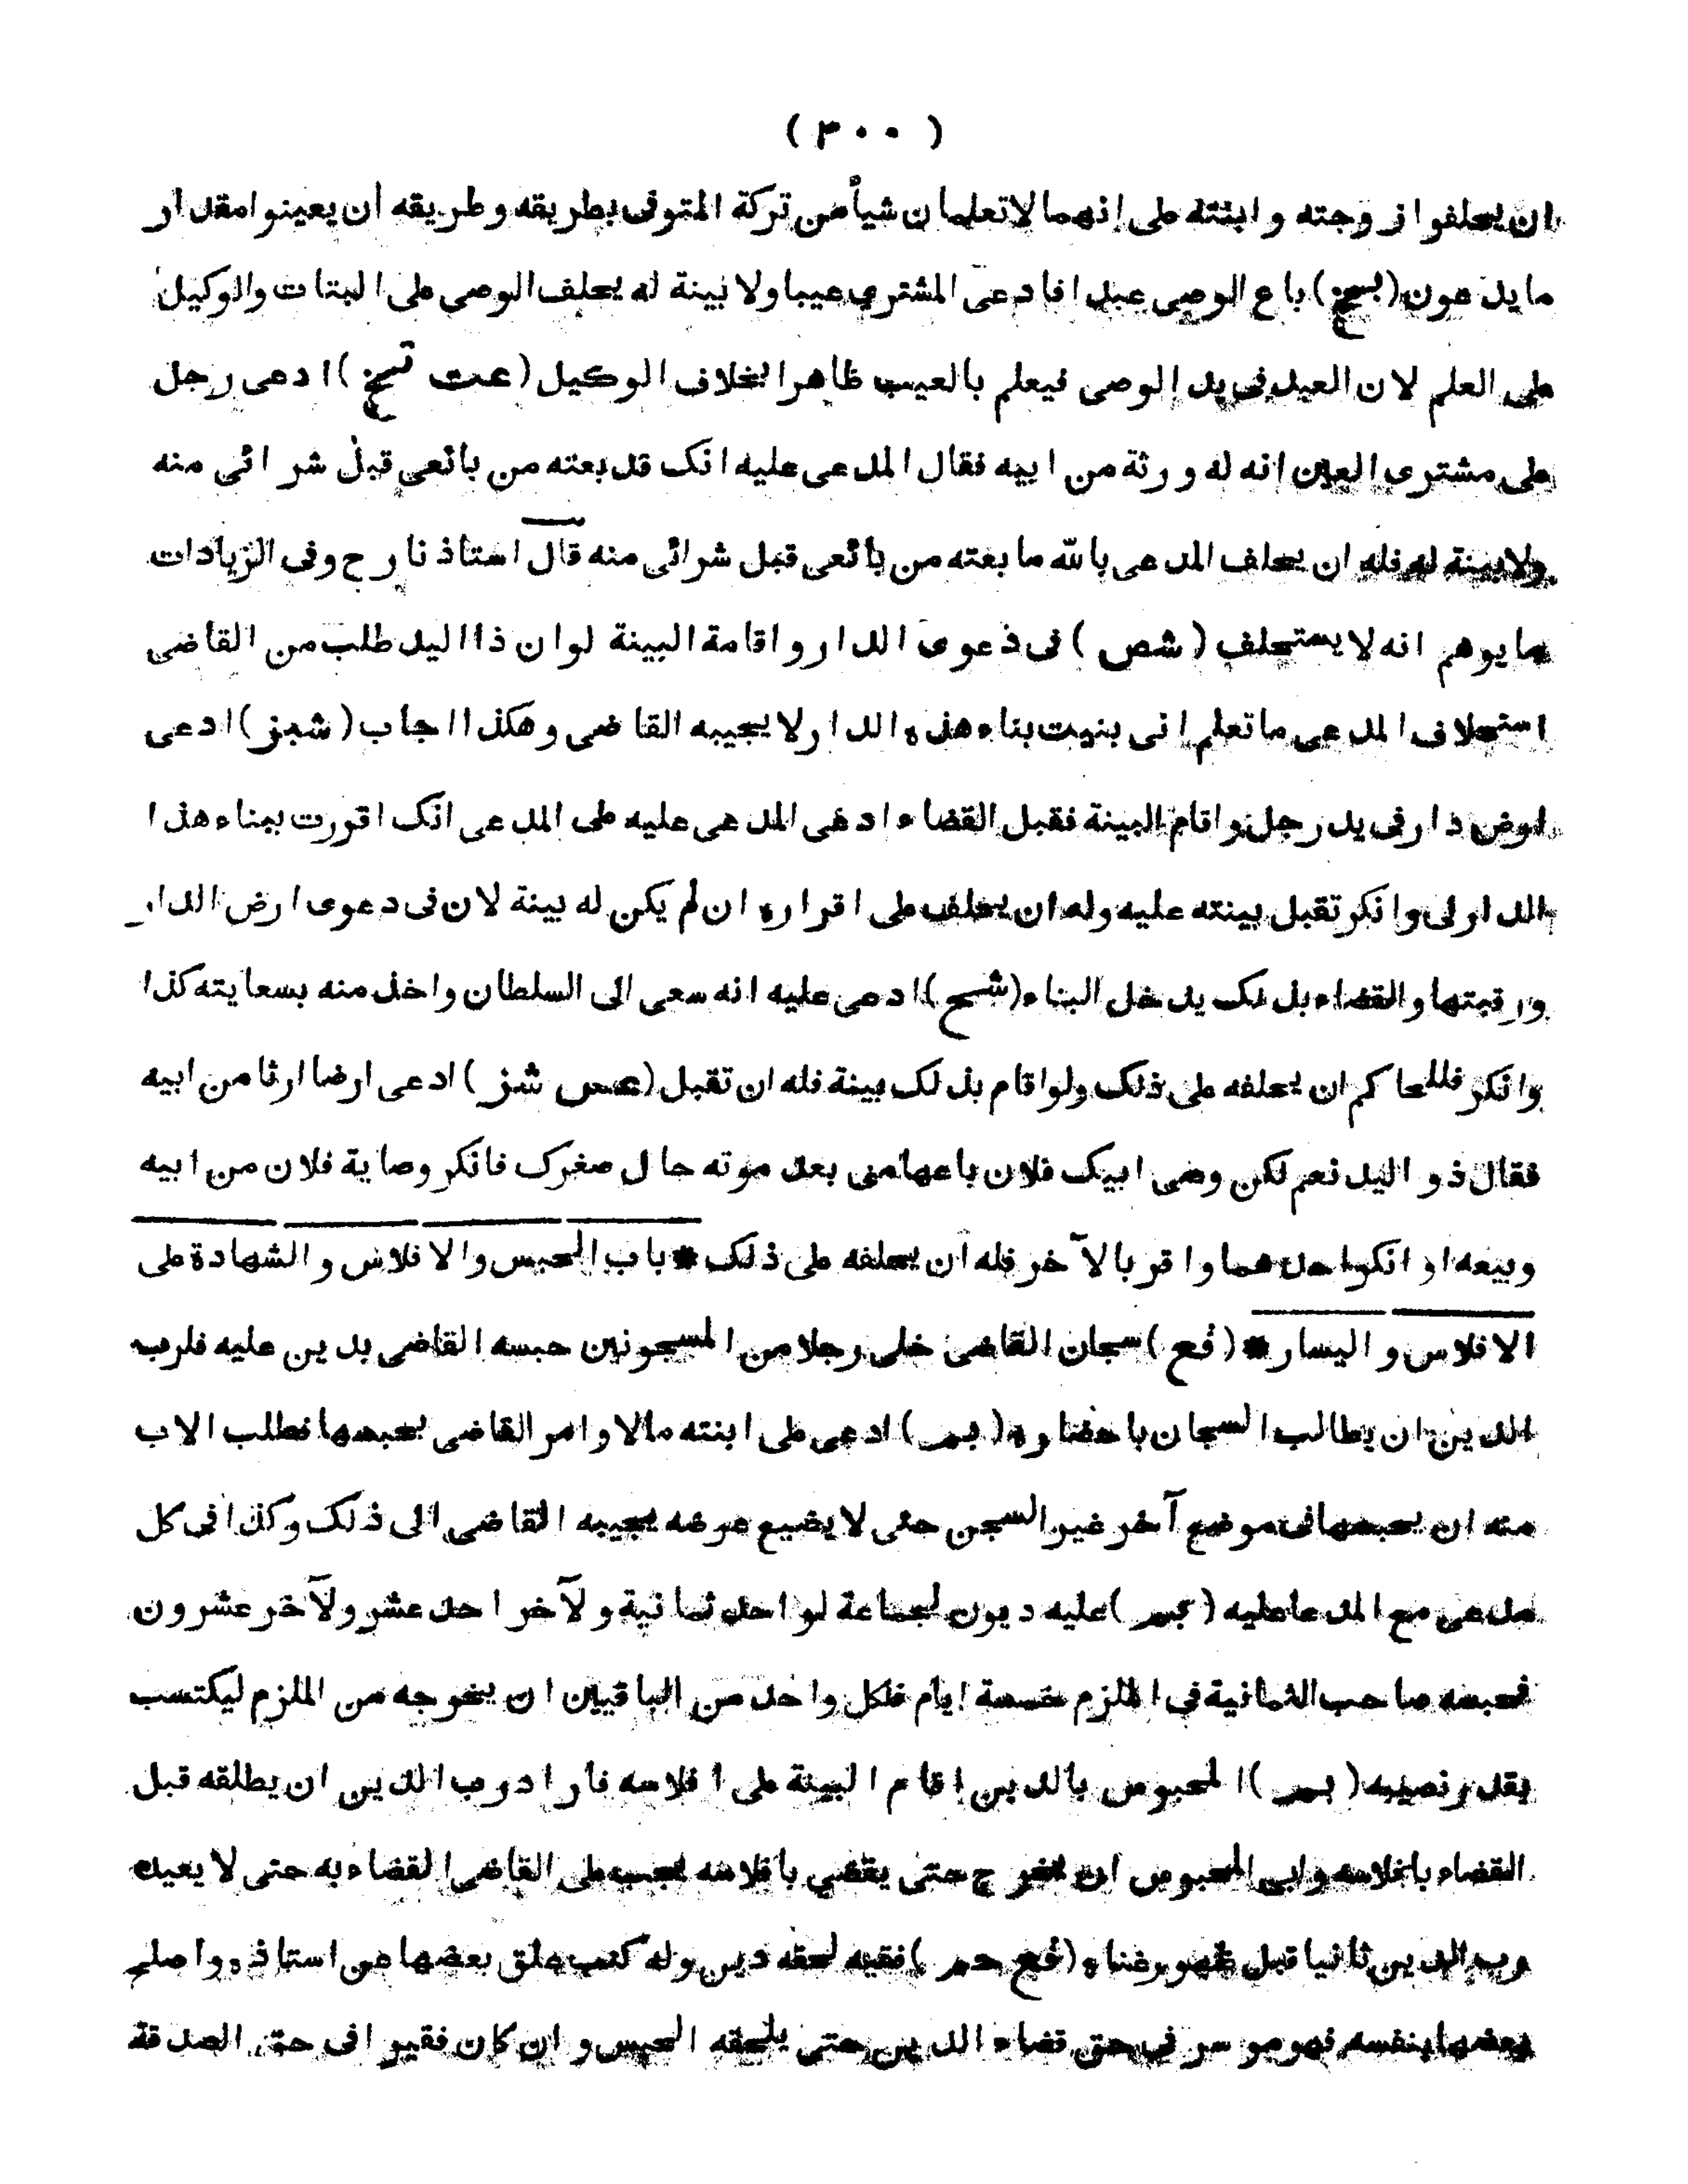 ( ٣٠٠ )
ان يحلفوا زوجته وابنته على انهما لا تعلمان شيأ من تركة المتوفى بطريقه وطريقه أن يعينوا مقدار
ما يدعون (بسخ) باع الوصى عبدا فادعى المشترى عيبا ولا بينة له يحلف الوصى على البتات والوكيل
على العلم لان العبد فى يد الوصى فيعلم بالعيب ظاهرا بخلاف الوكيل (عت تسخ) ادعى رجل
على مشترى العين انه له ورثة من ابيه فقال المدعى عليه انك قد بعته من بائعى قبل شرائى منه
ولا بينة له فله ان يحلف المدعى بالله ما بعته من بائعى قبل شرائى منه قال استاذنا رح وفى الزيادات
ما يوهم انه لا يستحلف (شص) فى دعوى الدار واقامة البينة لو ان ذا اليد طلب من القاضى
استحلاف المدعى ما تعلم انى بنيت بناء هذه الدار لا يجيبه القاضى وهكذا اجاب (شبز) ادعى
ارض دار فى يد رجل واقام البينة فقبل القضاء ادعى المدعى عليه على المدعى انك اقررت ببناء هذا
الدار لى وانكر تقبل بينته عليه وله ان يحلف على اقراره ان لم يكن له بينة لان فى دعوى ارض الدار
ورقبتها والقضاء بذلك يدخل البناء (شسح) ادعى عليه انه سعى الى السلطان واخذ منه بسعايته كذا
وانكر فللحاكم ان يحلفه على ذلك ولو اقام بذلك بينة فله ان تقبل (عس شز) ادعى ارضا ارثا من ابيه
فقال ذو اليد نعم لكن وصى ابيك فلان باعها منى بعد موته حال صغرك فانكر وصاية فلان من ابيه
وبيعه او انكر احدهما واقر بالآخر فله أن يحلفه على ذلك * باب الحبس والافلاس والشهادة على
الافلاس واليسار * (فع) سجان القاضى خلى رجلا من المسجونين حبسه القاضى بدين عليه فلرب
الدين ان يطالب السجان باحضاره (بم) ادعى على ابنته مالا وامر القاضى بحبسها فطلب الاب
منه ان يحبسها فى موضع آخر غير السجن حتى لا يضيع عرضه يجيبه القاضى الى ذلك وكذا فى كل
مدعى مع المدعا عليه (بم) عليه ديون لجماعة لواحد ثمانية ولآخر احد عشر ولآخر عشرون
فحبسه صاحب الثمانية فى الملزم خمسة ايام فلكل واحد من الباقيين ان يخرجه من الملزم ليكتسب
بقدر نصيبه (بم) المحبوس بالدين اقام البينة على افلاسه فاراد رب الدين ان يطلقه قبل
القضاء بافلاسه وابى المحبوس ان يخرج حتى يقضى بافلاسه يجب على القاضى القضاء به حتى لا يعيده
رب الدين ثانيا قبل ظهور غناه (فع حم) فقيه لحقه دين وله كتب علق بعضها من استاذه واصلح
بعضها بنفسه فهو موسر فى حق قضاء الدين حتى يلحقه الحبس وان كان فقيرا فى حق الصدقة